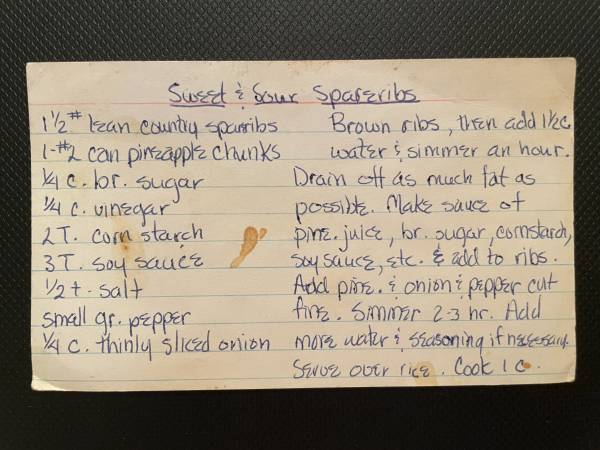 Sweet & Sour Spareribs
1 1/2 # lean country sparribs
1-#2 can pineapple chunks
1/4 c. br. sugar
1/4 c. vinegar
2 T. corn starch
3 T. soy sauce
1/2 t. salt
small gr. pepper
1/4 c. thinly sliced onion
Brown ribs, then add 1 1/2 c.
water & simmer an hour.
Drain off as much fat as
possible. Make sauce of
pine. juice, br. sugar, cornstarch,
soy sauce, etc. & add to ribs.
Add pine. & onion & pepper cut
fine. Simmer 2-3 hr. Add
more water & seasoning if necessary.
Serve over rice. Cook 1 c.